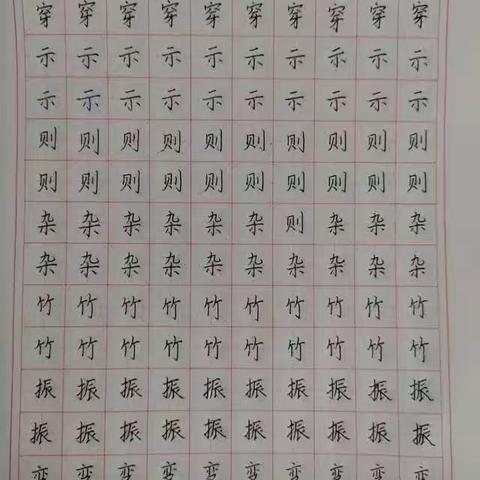 穿穿穿穿穿穿穿穿穿穿
示示示示示示示示示示
示示示示示示示示示示
则则则则则则则则则则
则则则则则则则则则则
杂杂杂杂杂杂则杂杂杂
杂杂杂杂杂杂杂杂杂杂
竹竹竹竹竹竹竹竹竹竹
竹竹竹竹竹竹竹竹竹竹
振振振振振振振振振振
振振振振振振振振振振